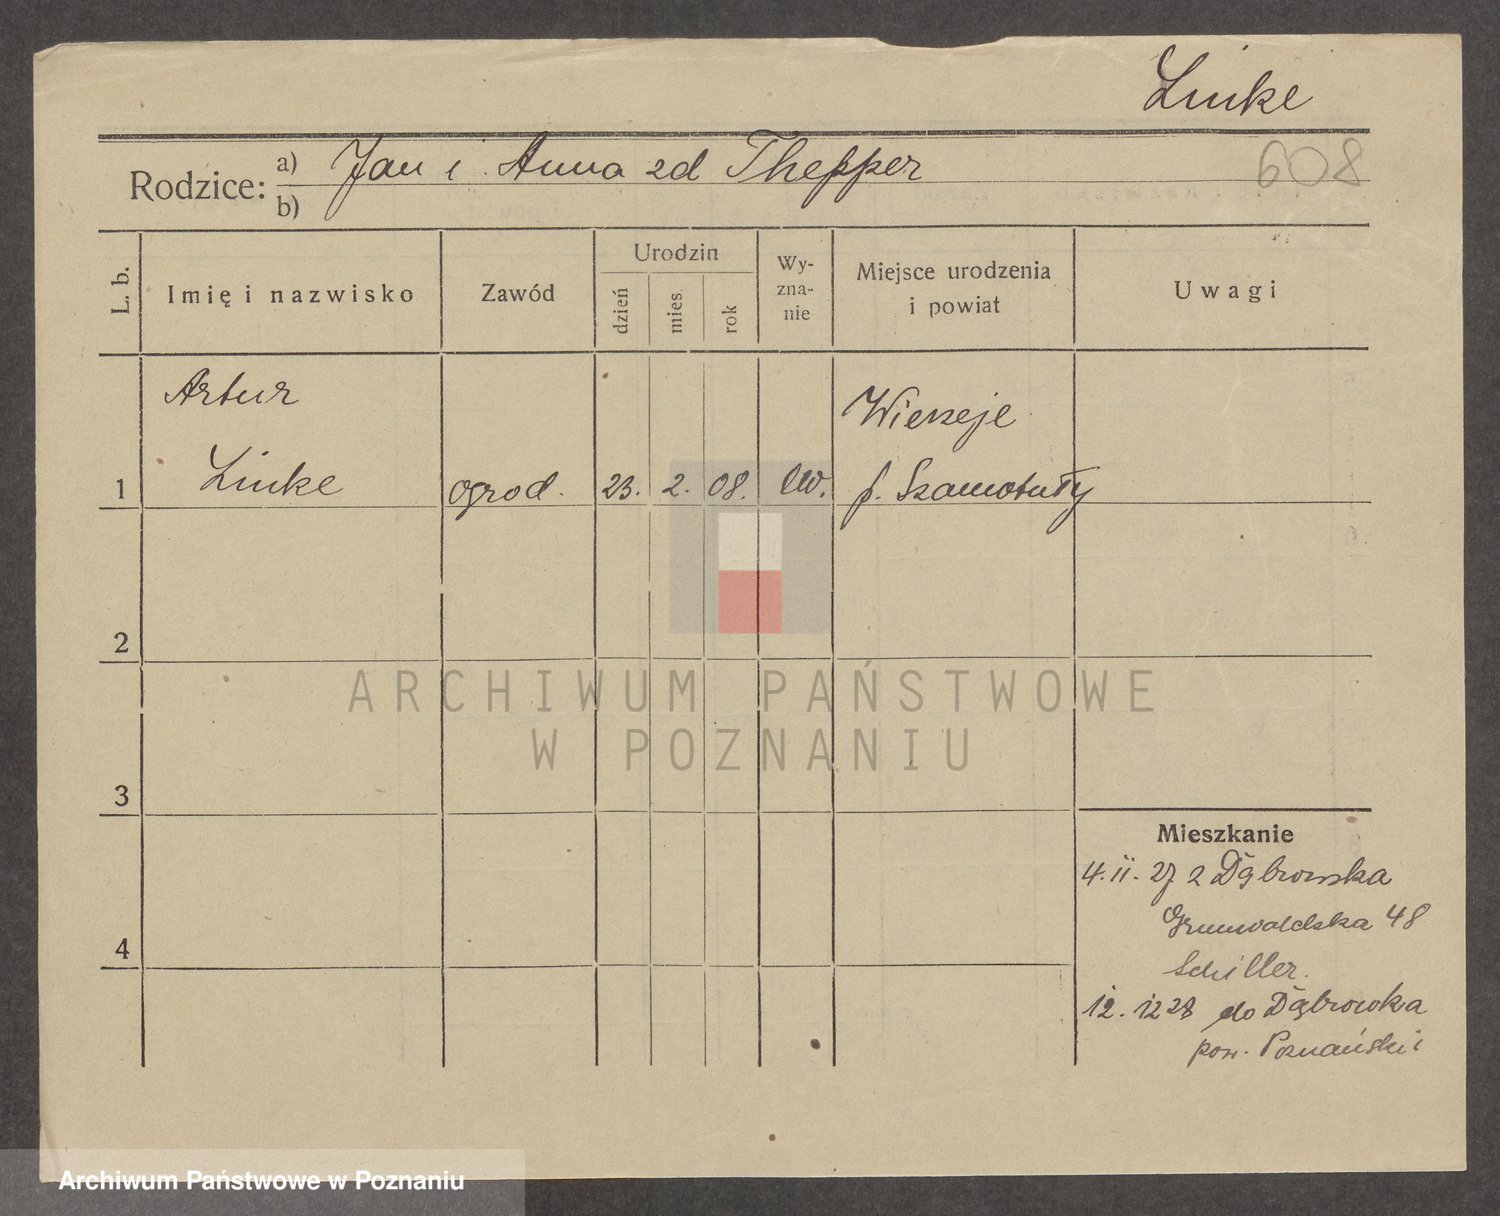 Linke
608
Rodzice: a) Jan i Anna zd Thepper
b)
L. b. Imię i nazwisko Zawód Urodzin dzień mies rok Wyznanie Miejsce urodzenia i powiat Uwagi
Artur Wierzeje
1 Linke ogrod. 23. 2. 08. ew. p. Szamotuły
2
3
4
Mieszkanie
4.11.27 z Dąbrowska
Grunwaldzka 48
Schiller.
12.1228 do Dąbrowka
pow. Poznański
ARCHIWUM PAŃSTWOWE
W POZNANIU
Archiwum Państwowe w Poznaniu